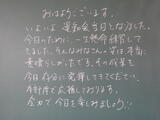 おはようございます。
いよいよ運動会当日となりました。
今日のために、一生懸命練習して
きました。そんなみなさんの姿は、本当に
素晴らしかったです。その成果を
今日存分に発揮してきてください。
本部席で応援しております。
全力で今日を楽しみましょう!!